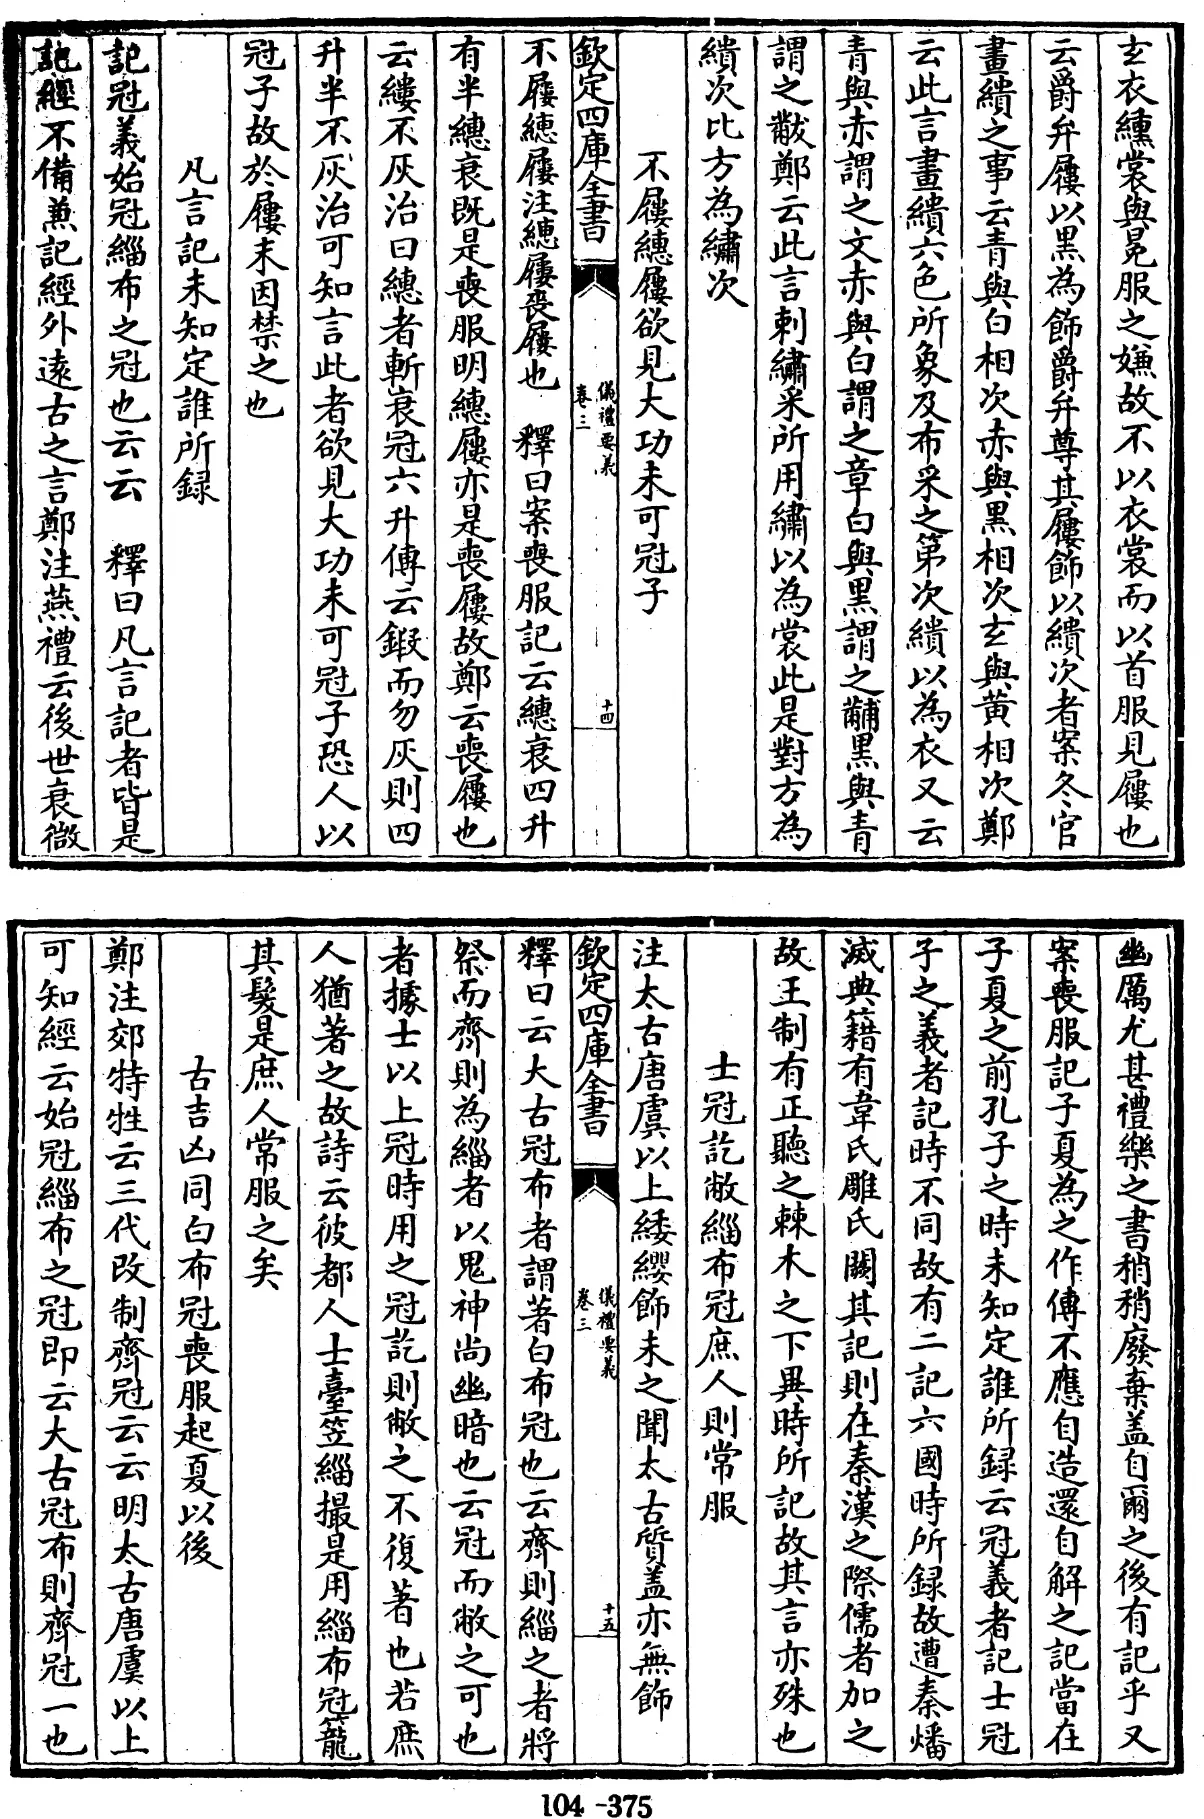 玄衣纁裳與冕服之嫌故不以衣裳而以首服見屨也
云爵弁屨以黒為飾爵弁尊其屨飾以繢次者案冬官
畫繢之事云青與白相次赤與黒相次玄與黄相次鄭
云此言畫繢六色所象及布采之第次繢以為衣又云
青與赤謂之文赤與白謂之章白與黒謂之黼黒與青
謂之黻鄭云此言刺繡采所用繡以為裳此是對方為
繢次比方為繡次
不屨繐屨欲見大功未可冠子
欽定四庫全書
儀禮要義
卷三
十四
不屨繐屨注繐屨喪屨也 釋曰案喪服記云繐衰四升
有半繐衰既是喪服明繐屨亦是喪屨故鄭云喪屨也
云縷不灰治曰繐者斬衰冠六升傳云鍛而勿灰則四
升半不灰治可知言此者欲見大功未可冠子恐人以
冠子故於屨末因禁之也
凡言記未知定誰所録
記冠義始冠緇布之冠也云云 釋曰凡言記者皆是
記經不備兼記經外逺古之言鄭注燕禮云後世衰微
幽厲尤甚禮樂之書稍稍廢棄盖自爾之後有記乎又
案喪服記子夏為之作傳不應自造還自解之記當在
子夏之前孔子之時未知定誰所録云冠義者記士冠
子之義者記時不同故有二記六國時所録故遭秦燔
滅典籍有韋氏雕氏闕其記則在秦漢之際儒者加之
故王制有正聽之棘木之下異時所記故其言亦殊也
士冠訖敝緇布冠庶人則常服
注太古唐虞以上緌纓飾未之聞太古質盖亦無飾
欽定四庫全書
儀禮要義
卷三
十五
釋曰云大古冠布者謂著白布冠也云齊則緇之者將
祭而齊則為緇者以鬼神尚幽暗也云冠而敝之可也
者據士以上冠時用之冠訖則敝之不復著也若庶
人猶著之故詩云彼都人士臺笠緇撮是用緇布冠籠
其髮是庶人常服之矣
古吉凶同白布冠喪服起夏以後
鄭注郊特牲云三代改制齊冠云云明太古唐虞以上
可知經云始冠緇布之冠即云大古冠布則齊冠一也
104-375